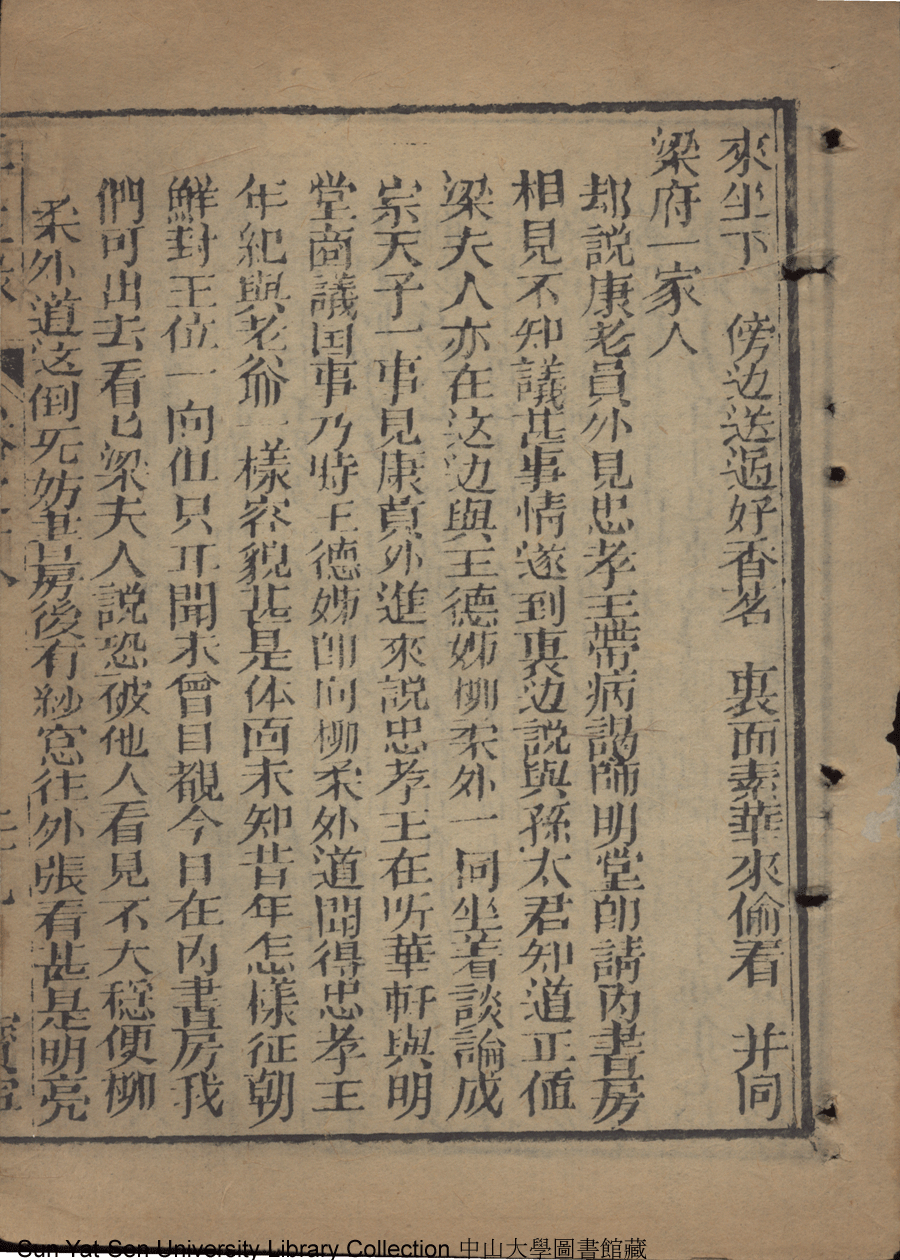 來坐下 傍边送過好香茗 裏面素華來偷看 并同
梁府一家人
却說康老員外見忠孝王帶病謁師明堂即請內書房
相見不知議甚事情遂到裏边說與孫太君知道正值
梁夫人亦在这边與王德姊柳柔外一同坐着談論成
宗天子一事見康員外進來說忠孝王在听華軒與明
堂商議国事乃時王德姊即向柳柔外道聞得忠孝王
年紀與老爺一樣容貌甚是体面未知昔年怎樣征朝
鮮封王位一向但只耳聞未曾目覩今日在內書房我
們可出去看乜梁夫人說恐破他人看見不大穩便柳
柔外道这倒无妨書房後有紗窓往外張看甚是明亮
Sun Yat Sen University Library Collection 中山大學圖書館藏